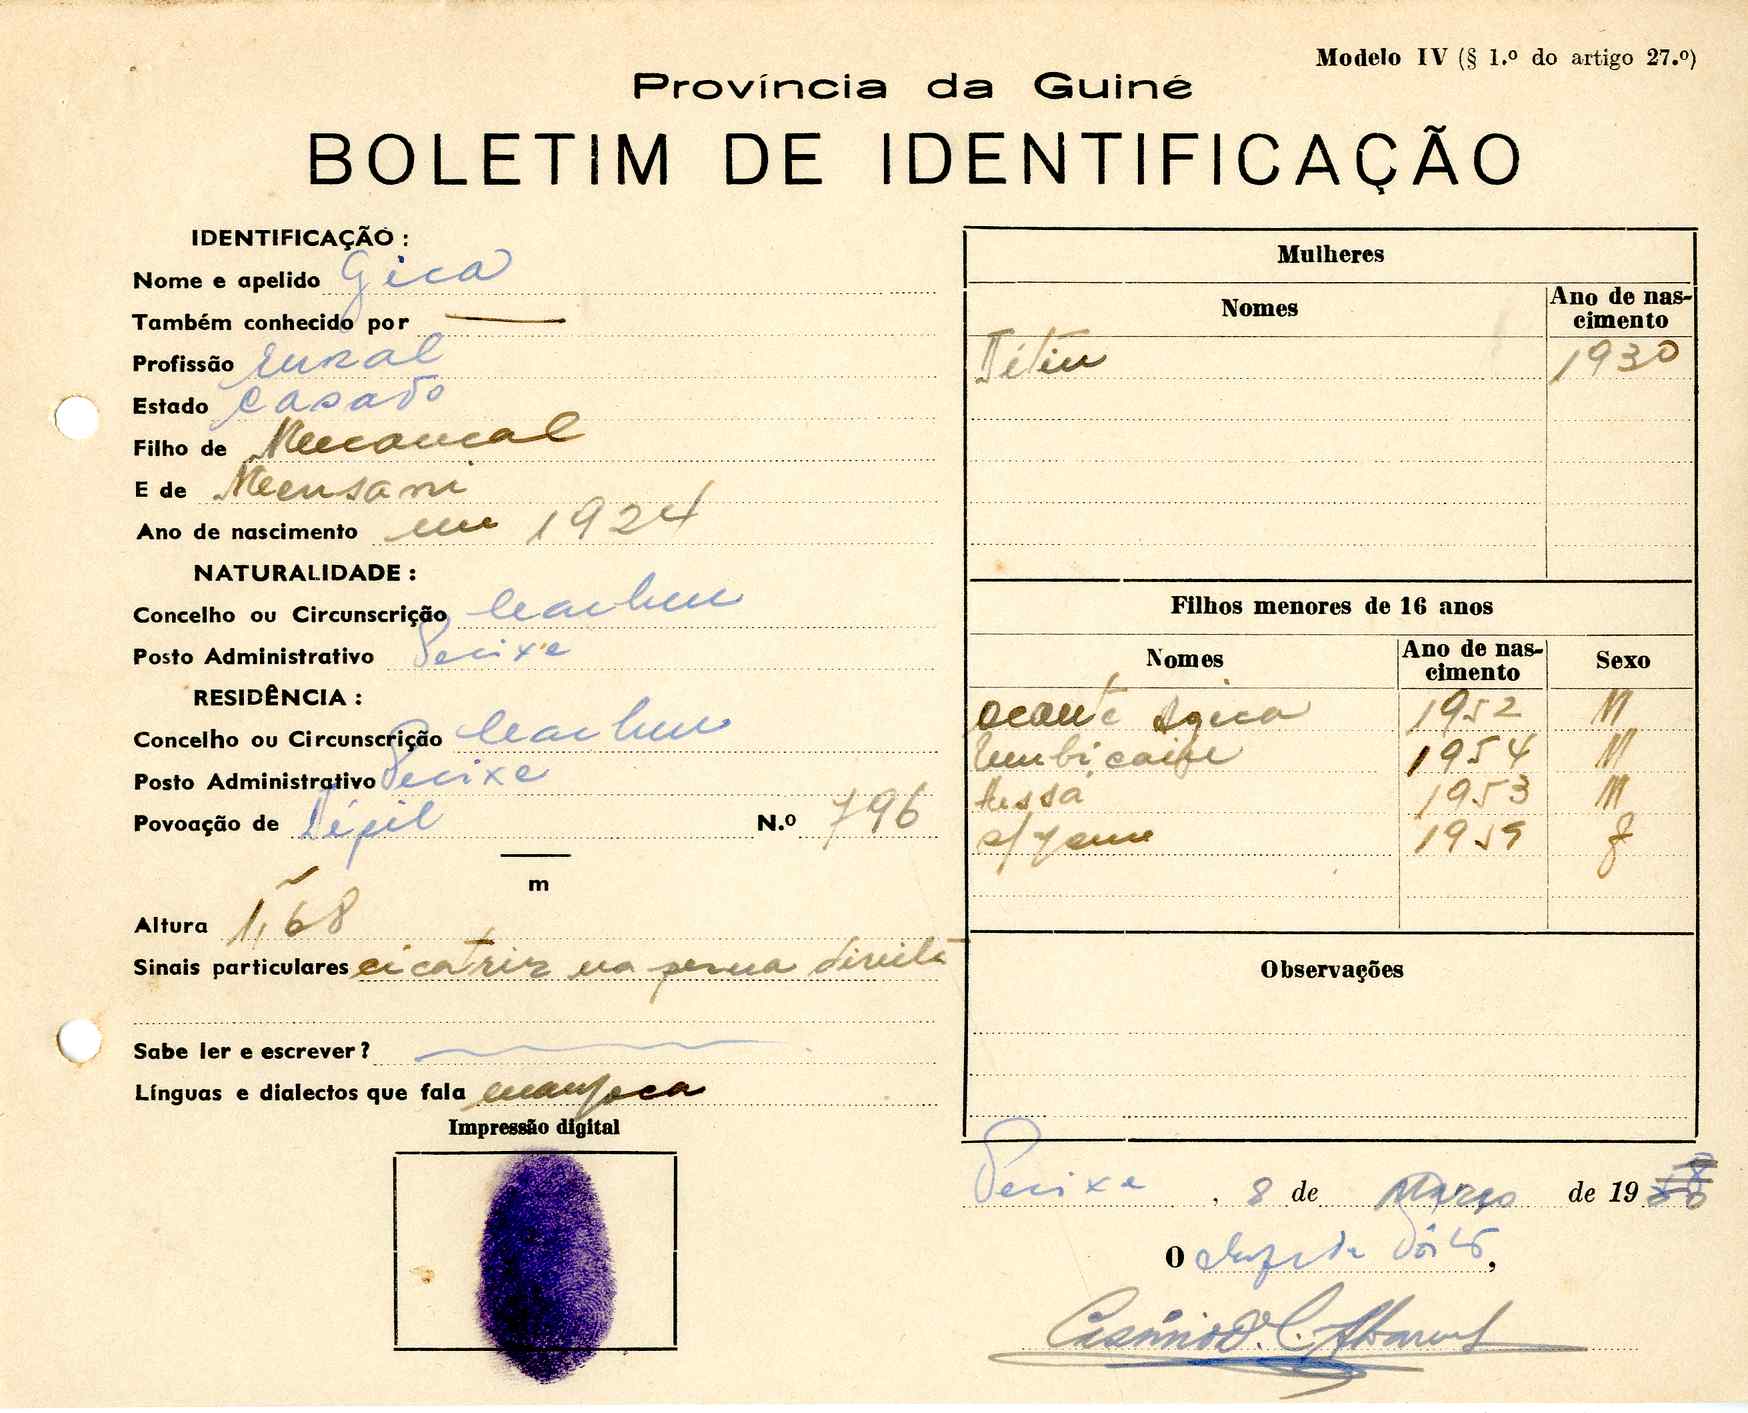 Modelo IV (§ 1.º do artigo 27.º)
Província da Guiné
BOLETIM DE IDENTIFICAÇÃO
IDENTIFICAÇÃO :
Nome e apelido Gica
Também conhecido por —
Profissão rural
Estado casado
Filho de
E de
Ano de nascimento em 1924
NATURALIDADE :
Concelho ou Circunscrição Cacheu
Posto Administrativo Pecixe
RESIDÊNCIA :
Concelho ou Circunscrição Cacheu
Posto Administrativo Pecixe
Povoação de N.º 796
m
Altura 1,68
Sinais particulares cicatriz na perna direita
Sabe ler e escrever?
Línguas e dialectos que fala manjaca
Impressão digital
Mulheres
Nomes Ano de nas-
cimento
1930
Filhos menores de 16 anos
Nomes Ano de nas-
cimento Sexo
1952 M
1954 M
1953 M
s/nome 1959 f
Observações
Pecixe, 8 de Março de 19
O Chefe de Posto,